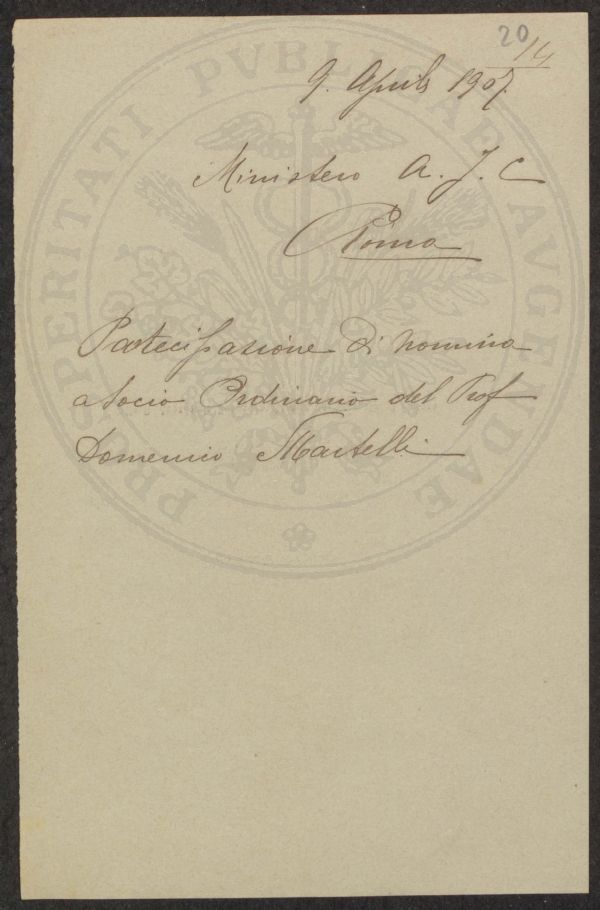 20
14
9. Aprile 1907
Ministero A. I. C
Roma
Partecipazione di nomina
a Socio Ordinario del Prof
Domenico Martelli
PROSPERITATI PVBLICAE AVGENDAE